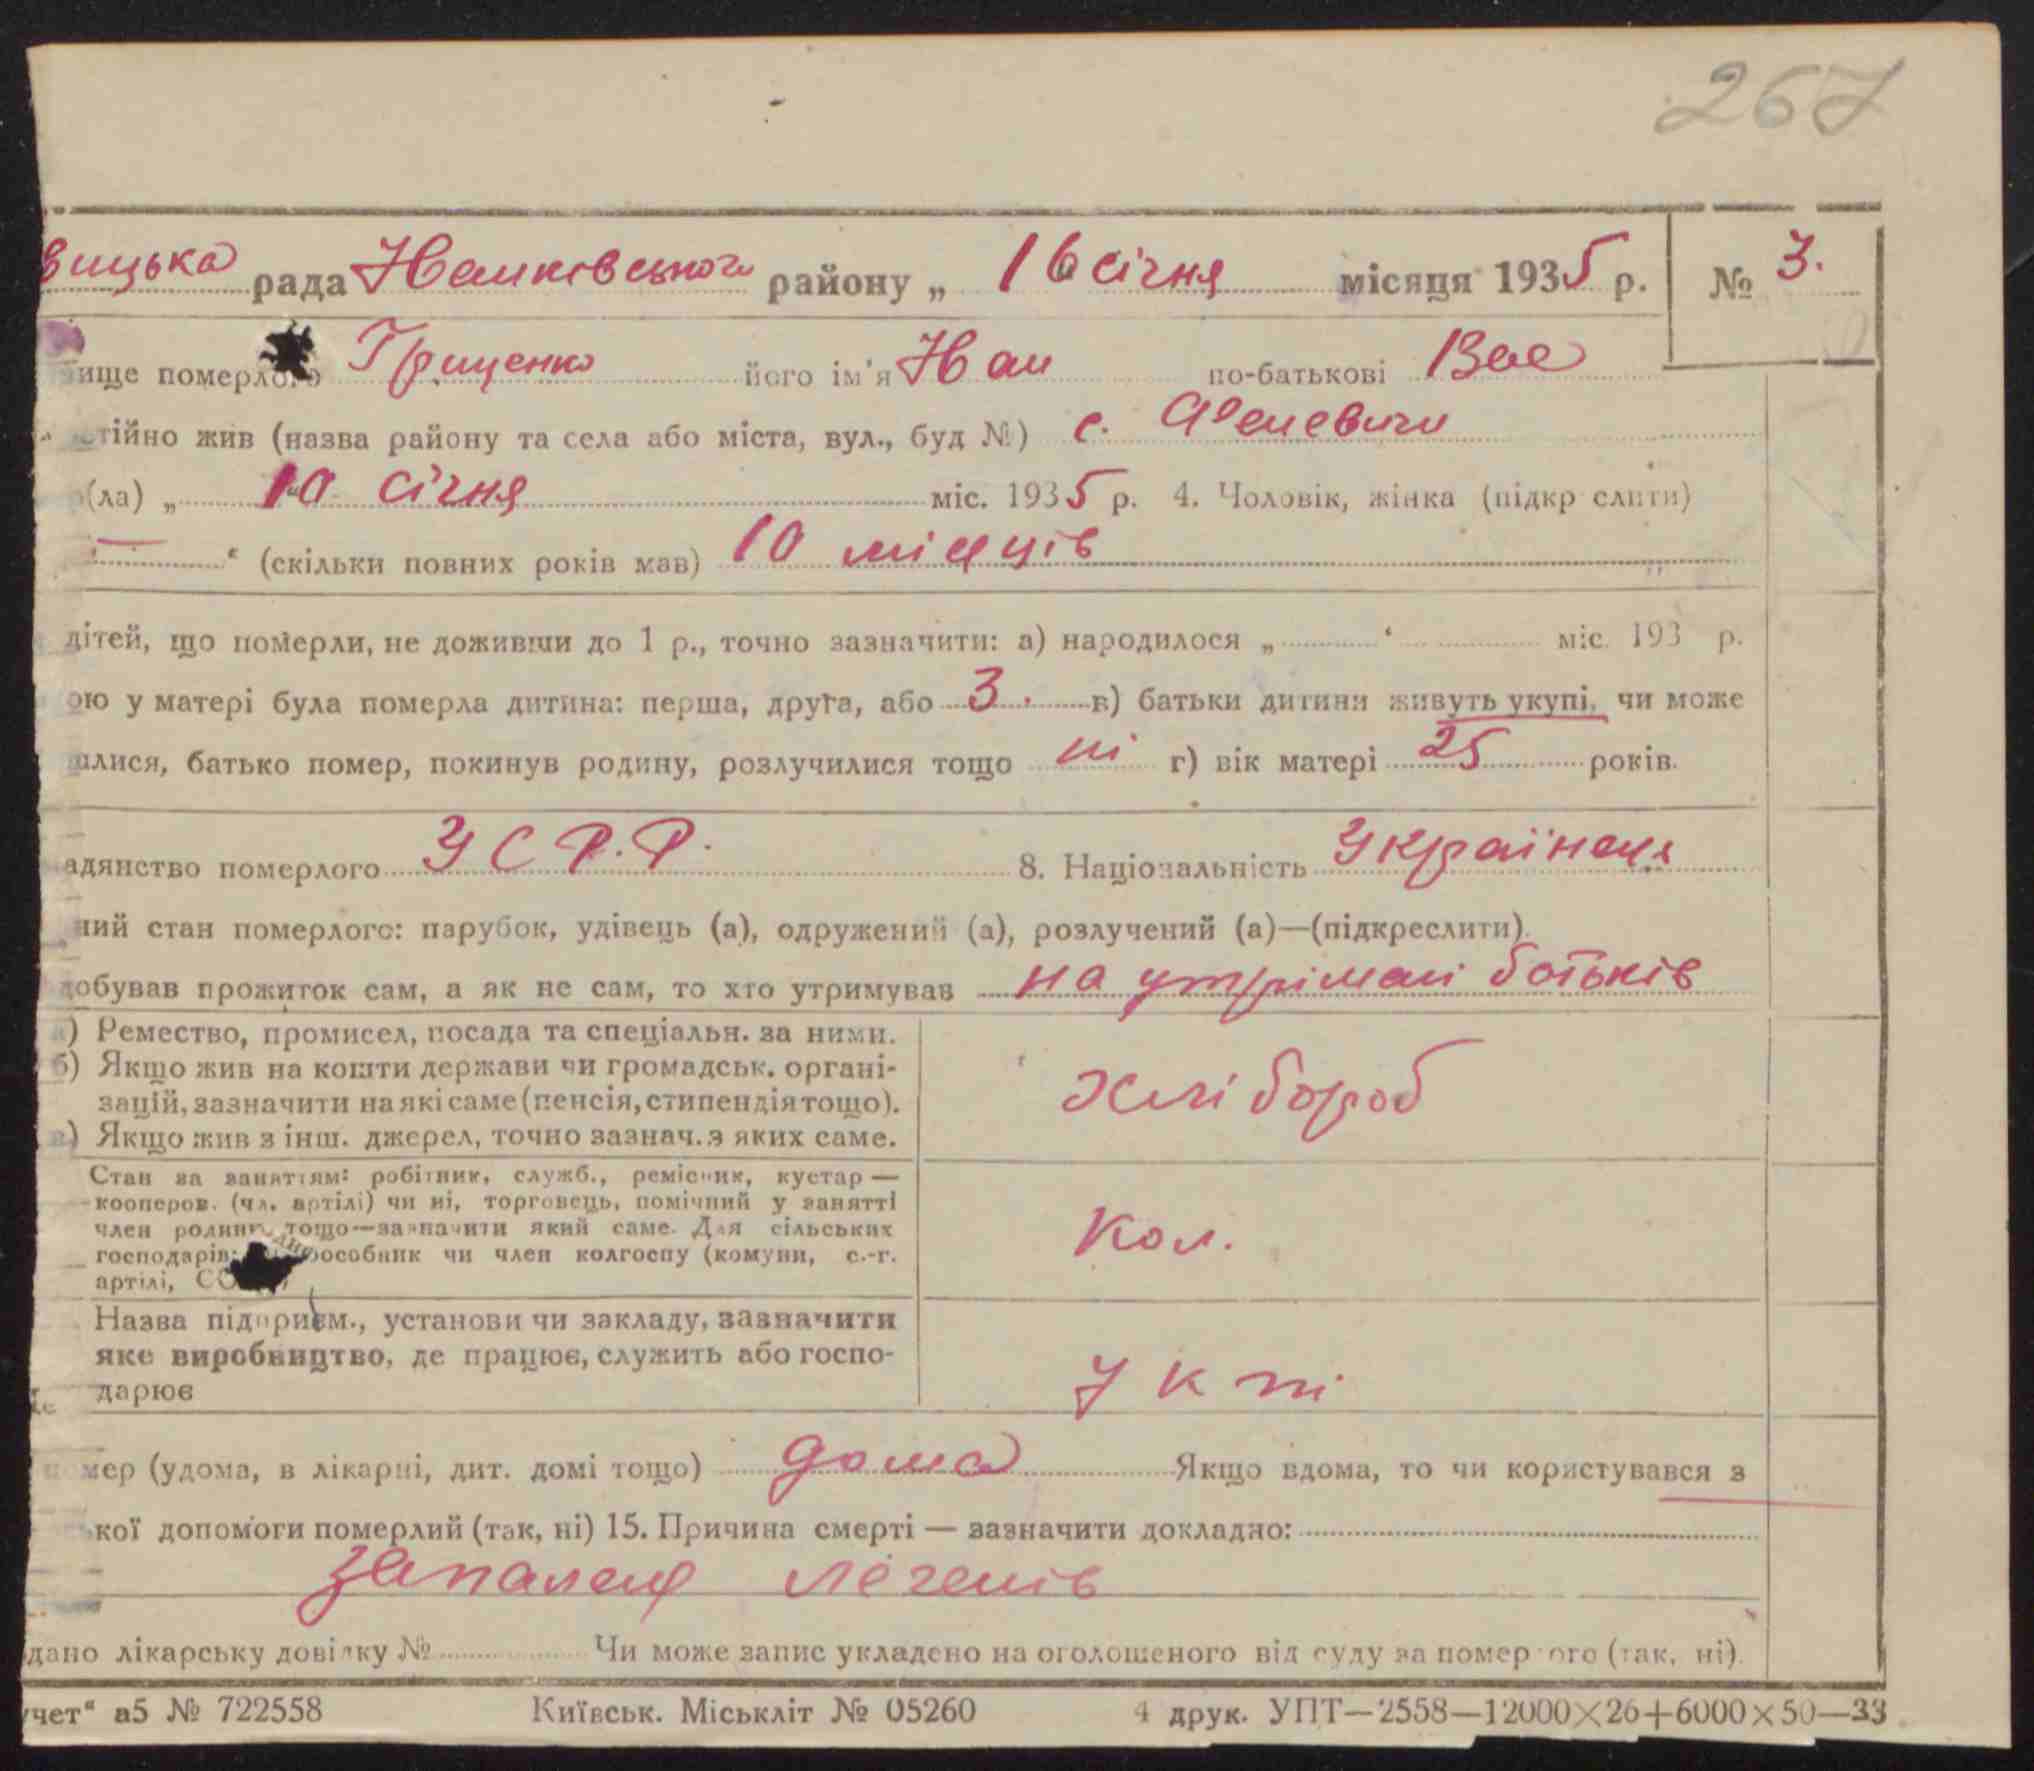 267
вицька рада Іванківського району „ 16 січня місяця 1935 р. № 3.
вище померлого Гриценко його ім'я Іван по-батькові Вас
стійно жив (назва району та села або міста, вул., буд №) с.
(ла) „ 10 січня міс. 1935 р. 4. Чоловік, жінка (підкр слити)
“ (скільки повних років мав) 10 місяців
дітей, що померли, не доживши до 1 р., точно зазначити: а) народилося „ “ міс. 193 р.
ою у матері була померла дитина: перша, друга, або 3. в) батьки дитини живуть укупі, чи може
шлися, батько помер, покинув родину, розлучилися тощо ні г) вік матері 25 років.
адянство померлого УСРР. 8. Національність Українець
ний стан померлого: парубок, удівець (а), одружений (а), розлучений (а)—(підкреслити).
добував прожиток сам, а як не сам, то хто утримував на утрімані батьків
а) Ремество, промисел, посада та спеціальн. за ними.
б) Якщо жив на кошти держави чи громадськ. органі-
зацій, зазначити на які саме (пенсія, стипендія тощо).
в) Якщо жив з інш. джерел, точно зазнач. з яких саме.
хлібороб
Стан за заняттям: робітник, служб., ремісник, кустар —
кооперов. (чл. артілі) чи ні, торговець, помічний у занятті
член родини тощо—зазначити який саме. Для сільських
господарів: особник чи член колгоспу (комуни, с.-г.
артілі,
Кол.
Назва підприєм., установи чи закладу, зазначити
яке виробництво, де працює, служить або госпо-
дарює
У к ті
помер (удома, в лікарні, дит. домі тощо) дома Якщо вдома, то чи користувався з
ької допомоги померлий (так, ні) 15. Причина смерті — зазначити докладно:
запаленя легенів
дано лікарську довідку № Чи може запис укладено на оголошеного від суду за померлого (так, ні).
учет“ а5 № 722558 Київськ. Міськліт № 05260 4 друк. УПТ—2558—12000×26+6000×50—33